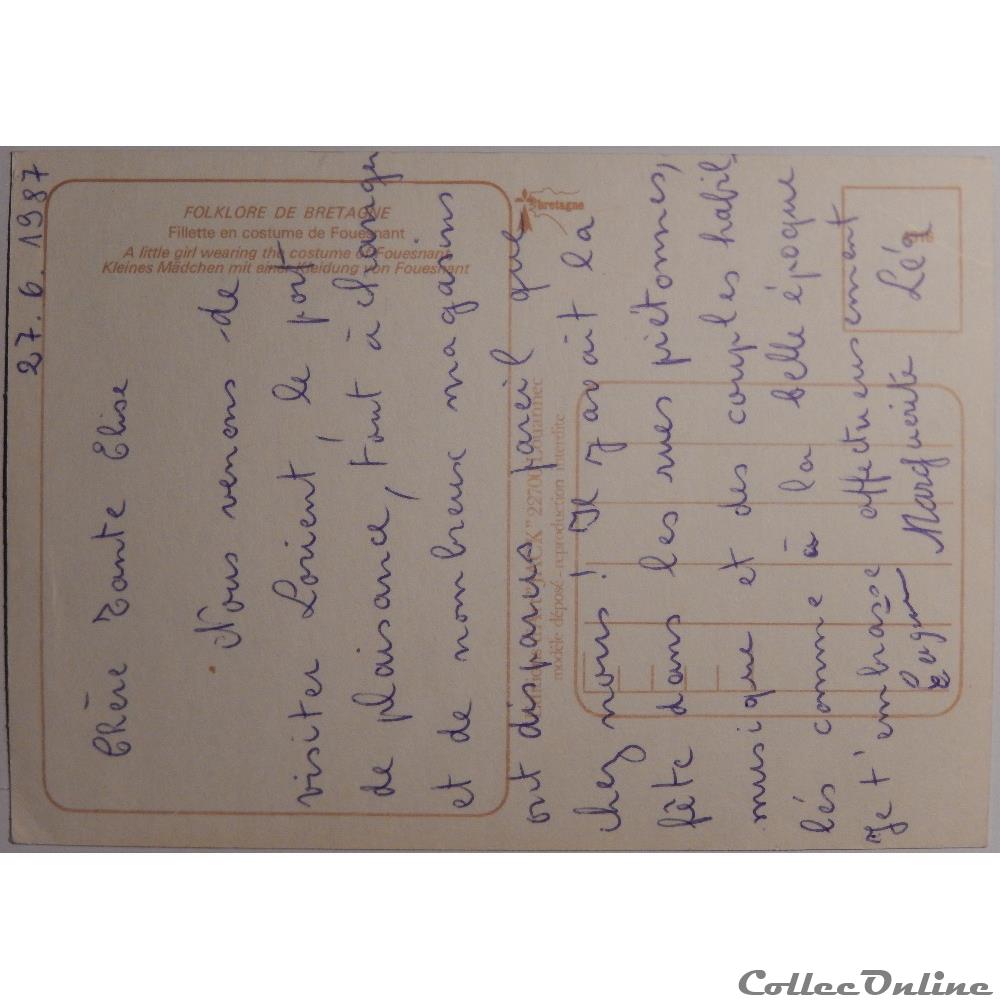 27.6.1987
Chère Tante Elise
Nous venons de
visiter Lorient, le port
de plaisance, tout à changer
et de nombreux magasins
ont disparus pareil que
chez nous ! Il y avait la
fête dans les rues piétonnes,
musique et des couples habil
lés comme à la belle époque
Je t'embrasse affectueusement
Marguerite Léa
FOLKLORE DE BRETAGNE
Fillette en costume de Fouesnant
A little girl wearing the costume of Fouesnant
Kleines Mädchen mit einer Kleidung von Fouesnant
bretagne
"JACK" 22700 Louannec
modèle déposé - reproduction interdite
CollecOnline